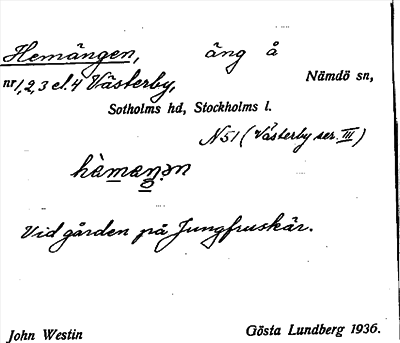 Hemängen, äng å
nr 1,2,3 el. 4 Västerby, Nämdö sn,
Sotholms hd, Stockholms l.
N51 (Västerby ser. III)
Vid gården på Jungfruskär.
John Westin Gösta Lundberg 1936.